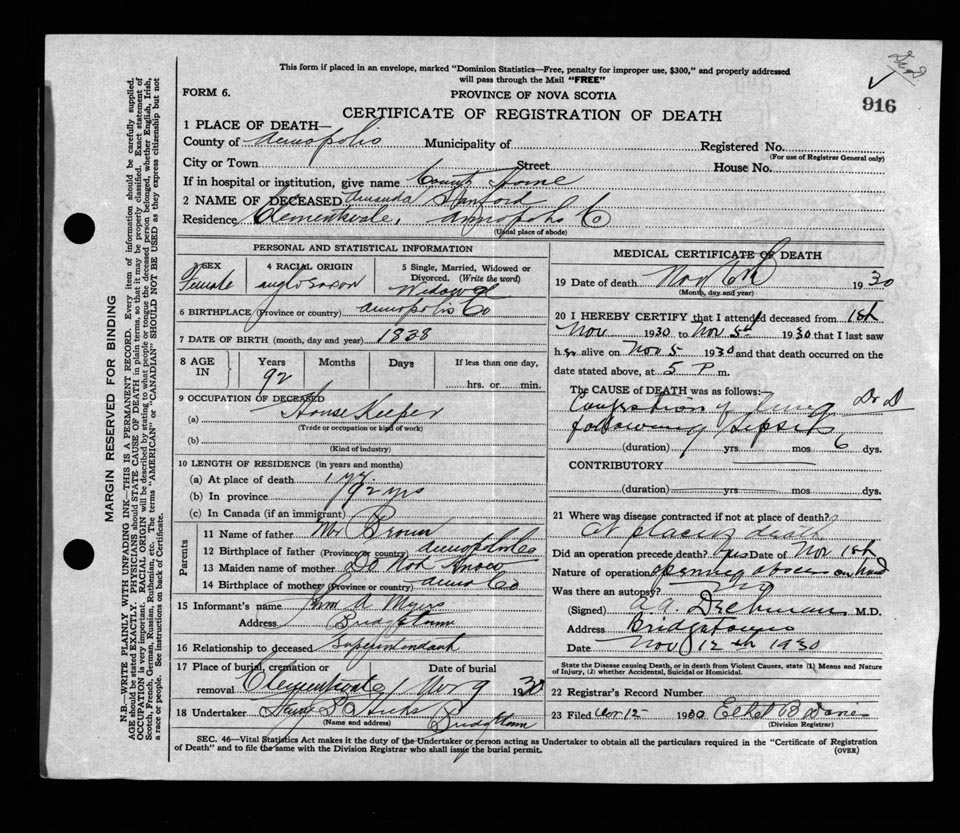 This form if placed in an envelope, marked "Dominion Statistics—Free, penalty for improper use, $300," and properly addressed
will pass through the Mail "FREE"
FORM 6.
PROVINCE OF NOVA SCOTIA
916
CERTIFICATE OF REGISTRATION OF DEATH
1 PLACE OF DEATH—
County of Annapolis Municipality of Registered No.
(For use of Registrar General only)
City or Town Street House No.
If in hospital or institution, give name County Home
2 NAME OF DECEASED Amanda Sanford
Residence Clementsvale, Annapolis Co
(Usual place of abode)
PERSONAL AND STATISTICAL INFORMATION
3 SEX Female
4 RACIAL ORIGIN Anglo Saxon
5 Single, Married, Widowed or Divorced. (Write the word) Widowed
6 BIRTHPLACE (Province or country) Annapolis Co
7 DATE OF BIRTH (month, day and year) 1838
8 AGE IN Years 92 Months Days If less than one day, hrs. or min.
9 OCCUPATION OF DECEASED
(a) House Keeper
(Trade or occupation or kind of work)
(b)
(Kind of industry)
10 LENGTH OF RESIDENCE (in years and months)
(a) At place of death 1 yr
(b) In province 92 yrs
(c) In Canada (if an immigrant)
Parents
11 Name of father Mr Brown
12 Birthplace of father (Province or country) Annapolis Co
13 Maiden name of mother Do Not Know
14 Birthplace of mother (Province or country) Anna Co
15 Informant's name A Myers
Address Bridgetown
16 Relationship to deceased Superintendant
17 Place of burial, cremation or removal Clementsvale Date of burial Nov 9 1930
18 Undertaker Hicks Bridgetown
(Name and address)
MEDICAL CERTIFICATE OF DEATH
19 Date of death Nov 6th 1930
(Month, day and year)
20 I HEREBY CERTIFY that I attended deceased from 1st
Nov 1930 to Nov 5th 1930 that I last saw
her alive on Nov 5 1930 and that death occurred on the
date stated above, at 5 P m.
The CAUSE of DEATH was as follows:
Congestion of Lung Dr D
following sepsis
(duration) yrs mos 6 dys.
CONTRIBUTORY
(duration) yrs mos dys.
21 Where was disease contracted if not at place of death?
At place of death
Did an operation precede death? Yes Date of Nov 1st
Nature of operation opening abscess on hand
Was there an autopsy? no
(Signed) M.D.
Address Bridgetown
Date Nov 12th 1930
State the Disease causing Death, or in death from Violent Causes, state (1) Means and Nature
of Injury, (2) whether Accidental, Suicidal or Homicidal.
22 Registrar's Record Number
23 Filed Nov 12 1930
(Division Registrar)
SEC. 46—Vital Statistics Act makes it the duty of the Undertaker or person acting as Undertaker to obtain all the particulars required in the "Certificate of Registration
of Death" and to file the same with the Division Registrar who shall issue the burial permit.
(OVER)
MARGIN RESERVED FOR BINDING
N.B.—WRITE PLAINLY WITH UNFADING INK—THIS IS A PERMANENT RECORD. Every item of information should be carefully supplied.
AGE should be stated EXACTLY. PHYSICIANS should STATE CAUSE OF DEATH in plain terms, so that it may be properly classified. Exact statement of
OCCUPATION is very important. RACIAL ORIGIN will be described by stating to what people or tongue the deceased person belonged, whether English, Irish,
Scotch, French, German, Russian, Ruthenian, etc. The terms "AMERICAN" or "CANADIAN" SHOULD NOT BE USED as they express citizenship but not
a race or people. See instructions on back of Certificate.